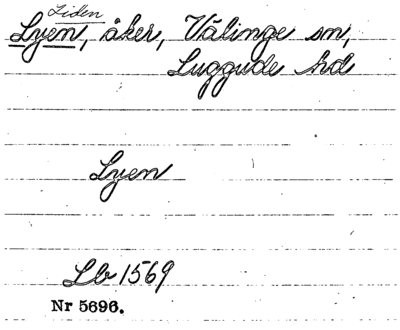 Liden
Lyen, åker, Välinge sn,
Luggude hd
Lyen
Lb 1569
Nr 5696.